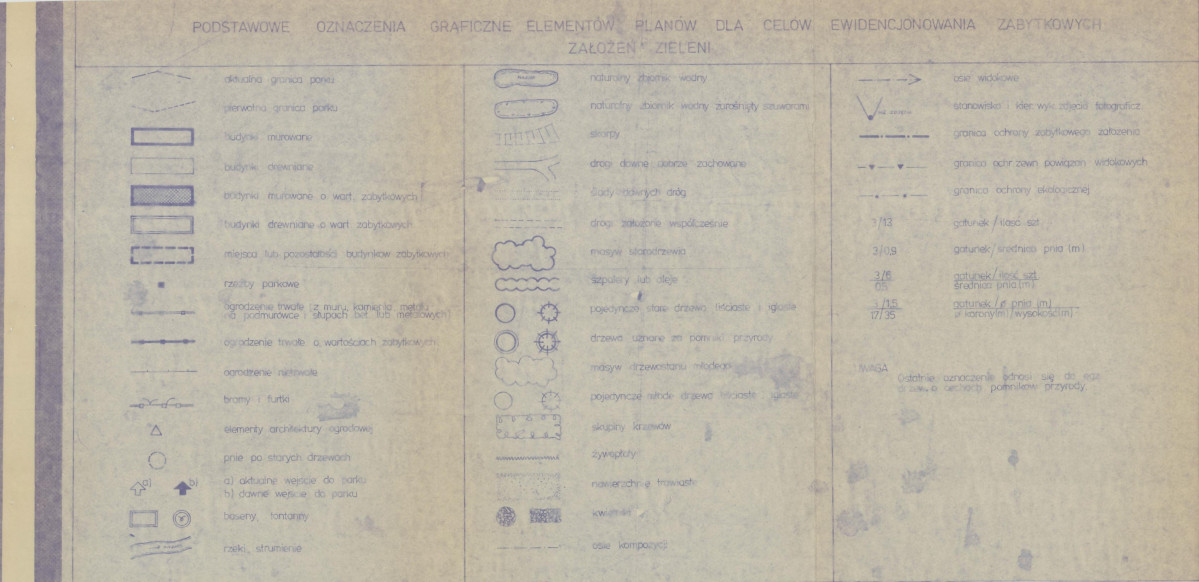 PODSTAWOWE OZNACZENIA GRAFICZNE ELEMENTÓW PLANÓW DLA CELÓW EWIDENCJONOWANIA ZABYTKOWYCH
ZAŁOŻEŃ ZIELENI
aktualna granica parku
pierwotna granica parku
budynki murowane
budynki drewniane
budynki murowane o wart. zabytkowych
budynki drewniane o wart. zabytkowych
miejsca lub pozostałości budynków zabytkowych
rzeźby parkowe
ogrodzenie trwałe (z muru, kamienia, metalu
na podmurówce i słupach bet. lub metalowych)
ogrodzenie trwałe o wartościach zabytkowych
ogrodzenie nietrwałe
bramy i furtki
elementy architektury ogrodowej
pnie po starych drzewach
a) b)
a) aktualne wejście do parku
b) dawne wejście do parku
baseny, fontanny
rzeki, strumienie
naturalny zbiornik wodny
naturalny zbiornik wodny zarośnięty szuwarami
skarpy
drogi dawne dobrze zachowane
ślady dawnych dróg
drogi założone współcześnie
masyw starodrzewia
szpalery lub aleje
pojedyncze stare drzewa liściaste i iglaste
drzewa uznane za pomniki przyrody
masyw drzewostanu młodego
pojedyncze młode drzewa liściaste i iglaste
skupiny krzewów
żywopłoty
nawierzchnie trawiaste
kwietniki
osie kompozycji
osie widokowe
stanowisko i kier. wyk. zdjęcia fotograficz.
granica ochrony zabytkowego założenia
granica ochr. zewn. powiązań widokowych
granica ochrony ekologicznej
3/13 gatunek/ilość szt.
3/0,9 gatunek/średnica pnia (m)
3/6 gatunek/ilość szt.
0,5 średnica pnia (m)
3/1,5 gatunek/ø pnia (m)
17/35 ø korony(m)/wysokość(m)
UWAGA
Ostatnie oznaczenie odnosi się do
drzew o cechach pomników przyrody.